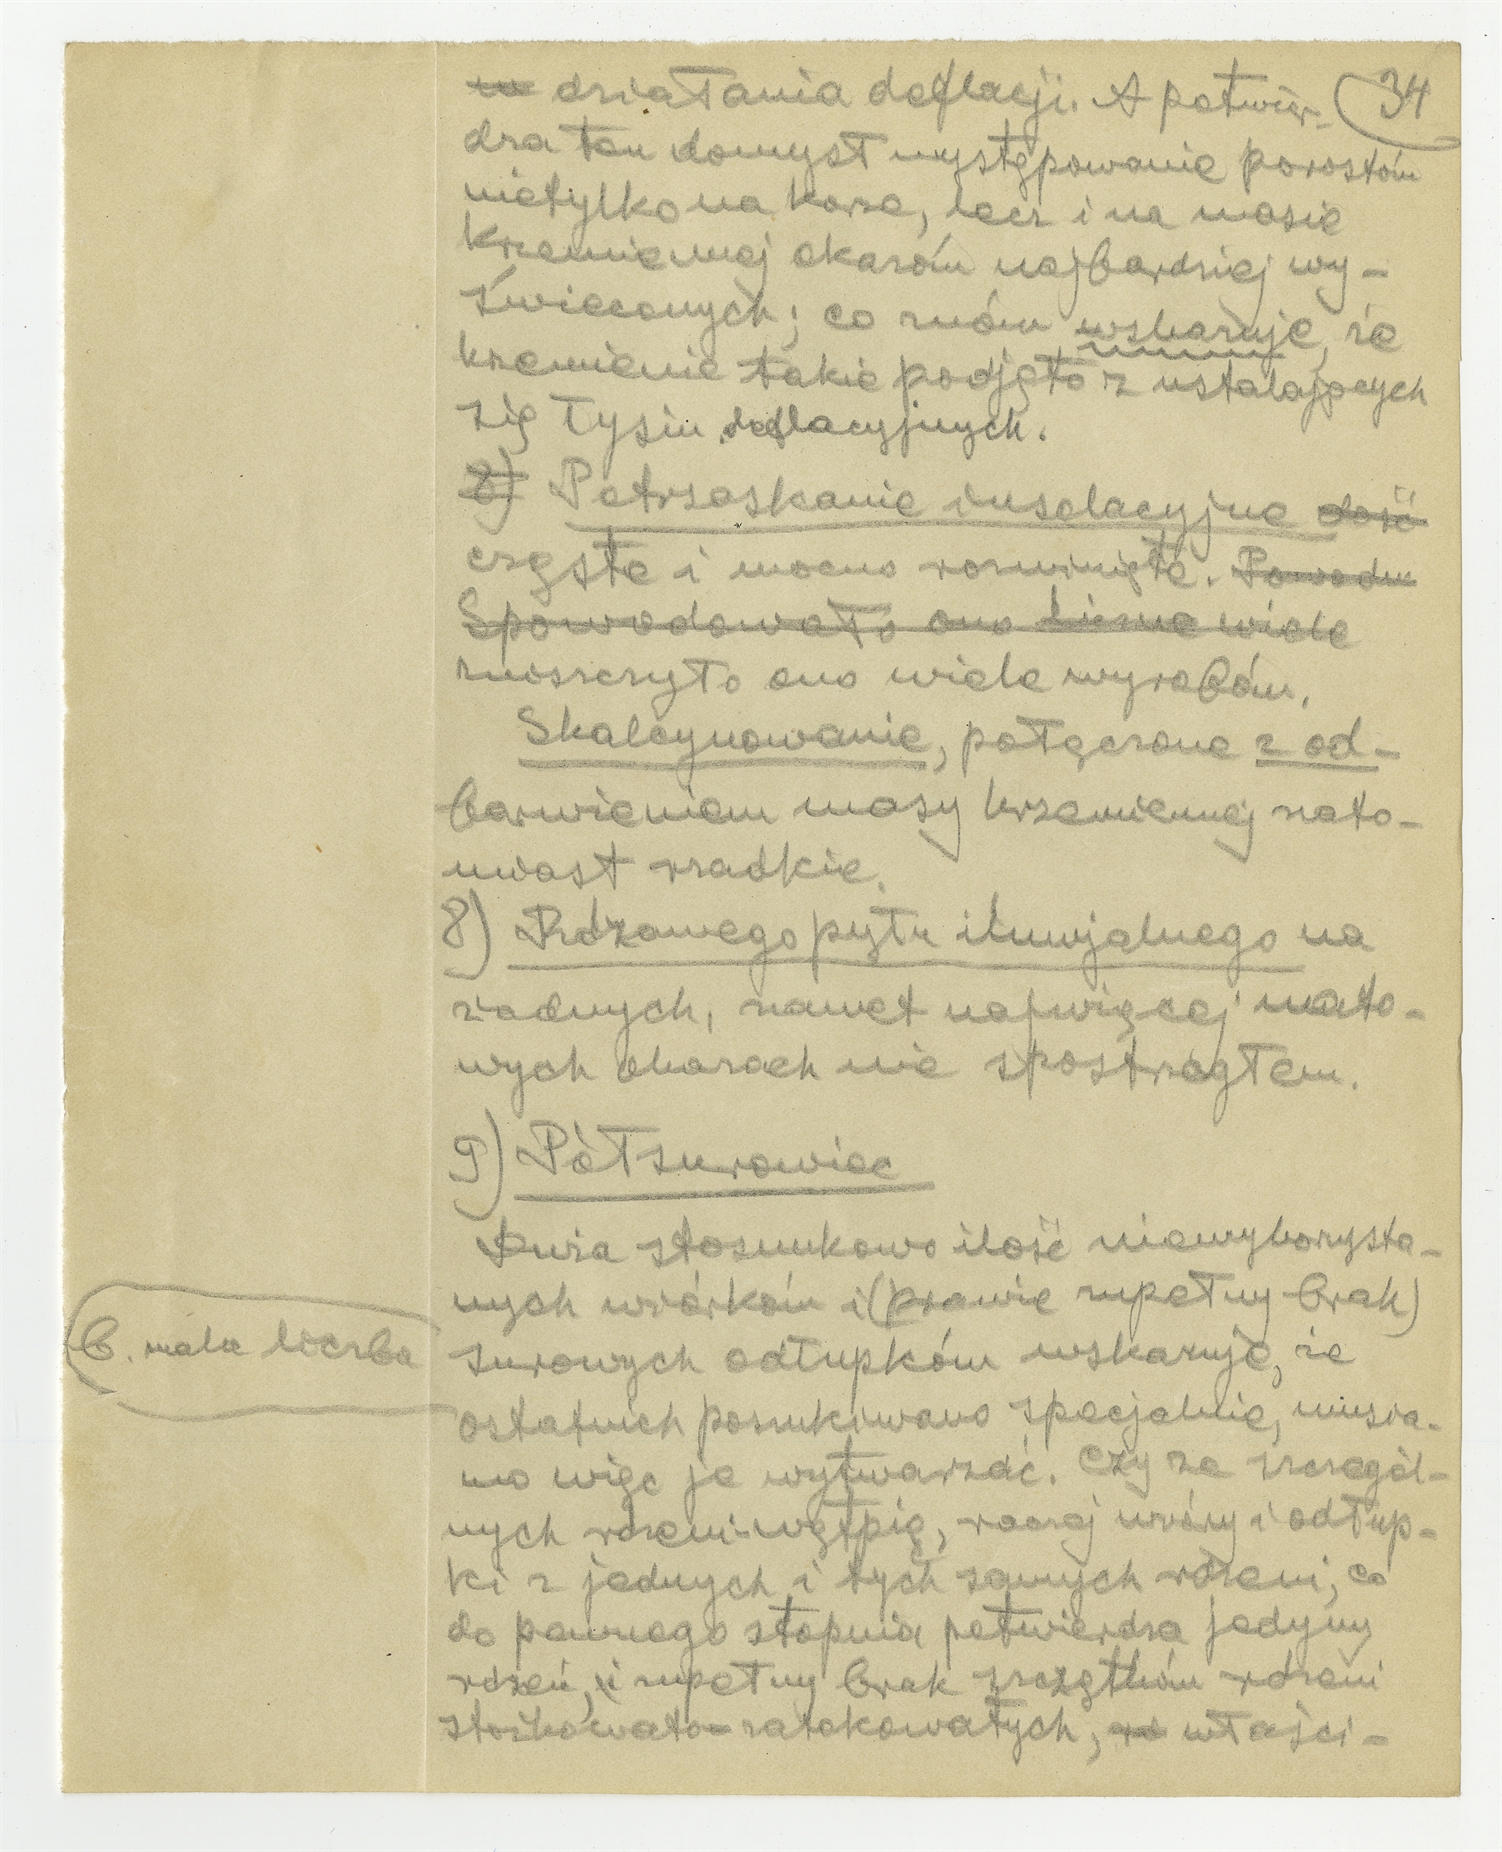 34
w działania deflacji. A potwier-
dza ten domysł występowanie porostów
nietylko na korze, lecz i na masie
krzemiennej okazów najbardziej wy-
świeconych; co znów wskazuje, że
krzemienie takie podjęto z ustalających
się łysin deflacyjnych.
8) Potrzaskanie insolacyjne dość
częste i mocno rozwinięte. Powodu
Spowodowało ono liczne wiele
zniszczyło ono wiele wyrobów.
Skalcynowanie, połączone z od-
barwieniem masy krzemiennej nato-
miast rzadkie.
8) Rdzawego pyłu iluwjalnego na
żadnych, nawet najwięcej mato-
wych okazach nie spostrzegłem.
9) Półsurowiec
Duża stosunkowo ilość niewykorzysta-
nych wiórków i (prawie zupełny brak)
b. mała liczba
surowych odłupków wskazuje, że
ostatnich poszukiwano specjalnie, musia-
no więc je wytwarzać. Czy ze szczegól-
nych rdzeni-wątpię, raczej wióry i odłup-
ki z jednych i tych samych rdzeni, co
do pewnego stopnia potwierdza jedyny
rdzeń, i zupełny brak szczątków rdzeni
stożkowato-zatokowatych, właści-